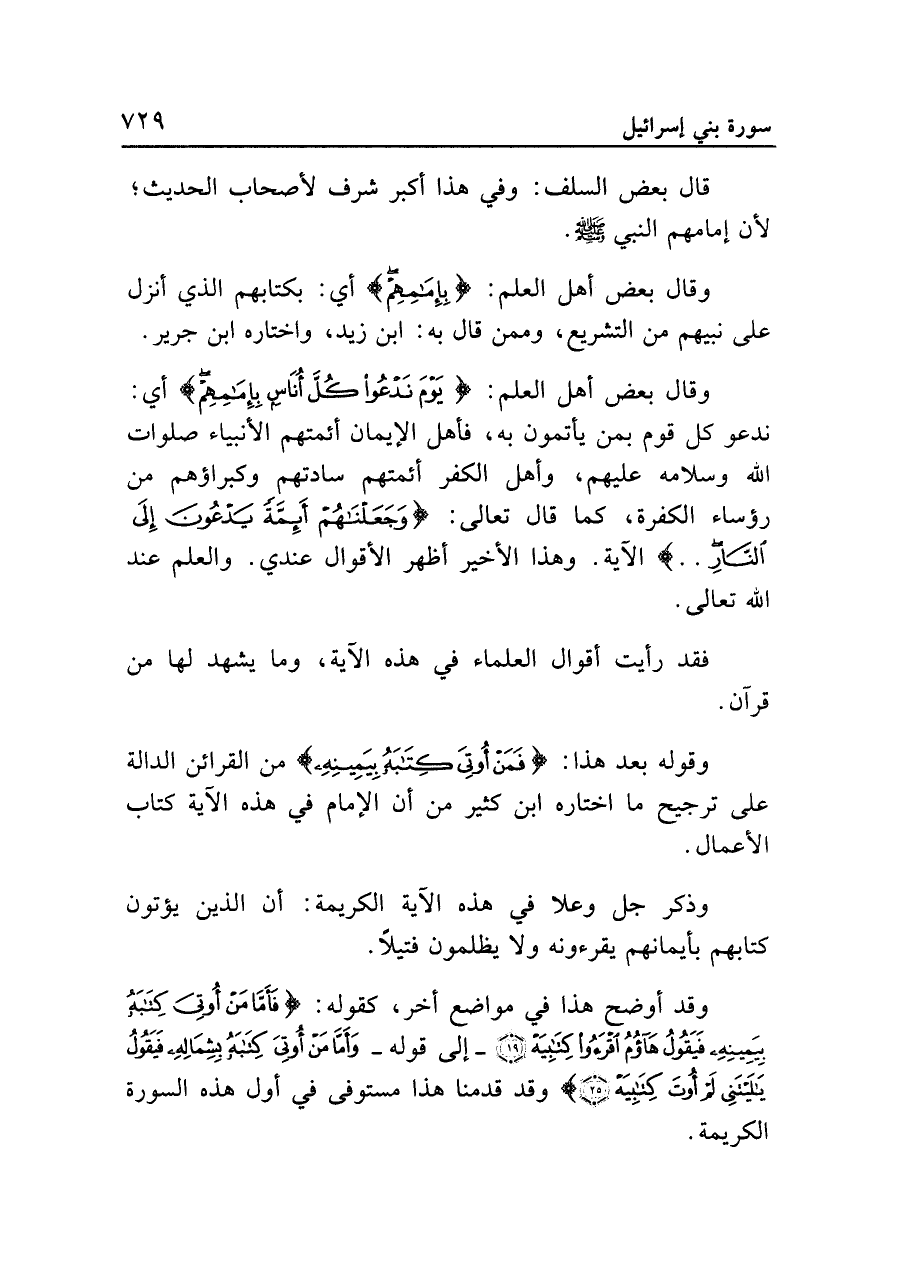 سورة بني إسرائيل ٧٢٩
قال بعض السلف: وفي هذا أكبر شرف لأصحاب الحديث؛
لأن إمامهم النبي ﷺ.
وقال بعض أهل العلم: ﴿بِإِمَٰمِهِمۡۖ﴾ أي: بكتابهم الذي أنزل
على نبيهم من التشريع، وممن قال به: ابن زيد، واختاره ابن جرير.
وقال بعض أهل العلم: ﴿يَوۡمَ نَدۡعُواْ كُلَّ أُنَاسِۭ بِإِمَٰمِهِمۡۖ﴾ أي:
ندعو كل قوم بمن يأتمون به، فأهل الإيمان أئمتهم الأنبياء صلوات
الله وسلامه عليهم، وأهل الكفر أئمتهم سادتهم وكبراؤهم من
رؤساء الكفرة، كما قال تعالى: ﴿وَجَعَلۡنَٰهُمۡ أَئِمَّةٗ يَدۡعُونَ إِلَى
ٱلنَّارِۖ . .﴾ الآية. وهذا الأخير أظهر الأقوال عندي. والعلم عند
الله تعالى.
فقد رأيت أقوال العلماء في هذه الآية، وما يشهد لها من
قرآن.
وقوله بعد هذا: ﴿فَمَنۡ أُوتِيَ كِتَٰبَهُۥ بِيَمِينِهِۦ﴾ من القرائن الدالة
على ترجيح ما اختاره ابن كثير من أن الإمام في هذه الآية كتاب
الأعمال.
وذكر جل وعلا في هذه الآية الكريمة: أن الذين يؤتون
كتابهم بأيمانهم يقرءونه ولا يظلمون فتيلاً.
وقد أوضح هذا في مواضع أخر، كقوله: ﴿فَأَمَّا مَنۡ أُوتِيَ كِتَٰبَهُۥ
بِيَمِينِهِۦ فَيَقُولُ هَآؤُمُ ٱقۡرَءُواْ كِتَٰبِيَهۡ ١٩ - إلى قوله - وَأَمَّا مَنۡ أُوتِيَ كِتَٰبَهُۥ بِشِمَالِهِۦ فَيَقُولُ
يَٰلَيۡتَنِي لَمۡ أُوتَ كِتَٰبِيَهۡ ٢٥﴾ وقد قدمنا هذا مستوفى في أول هذه السورة
الكريمة.